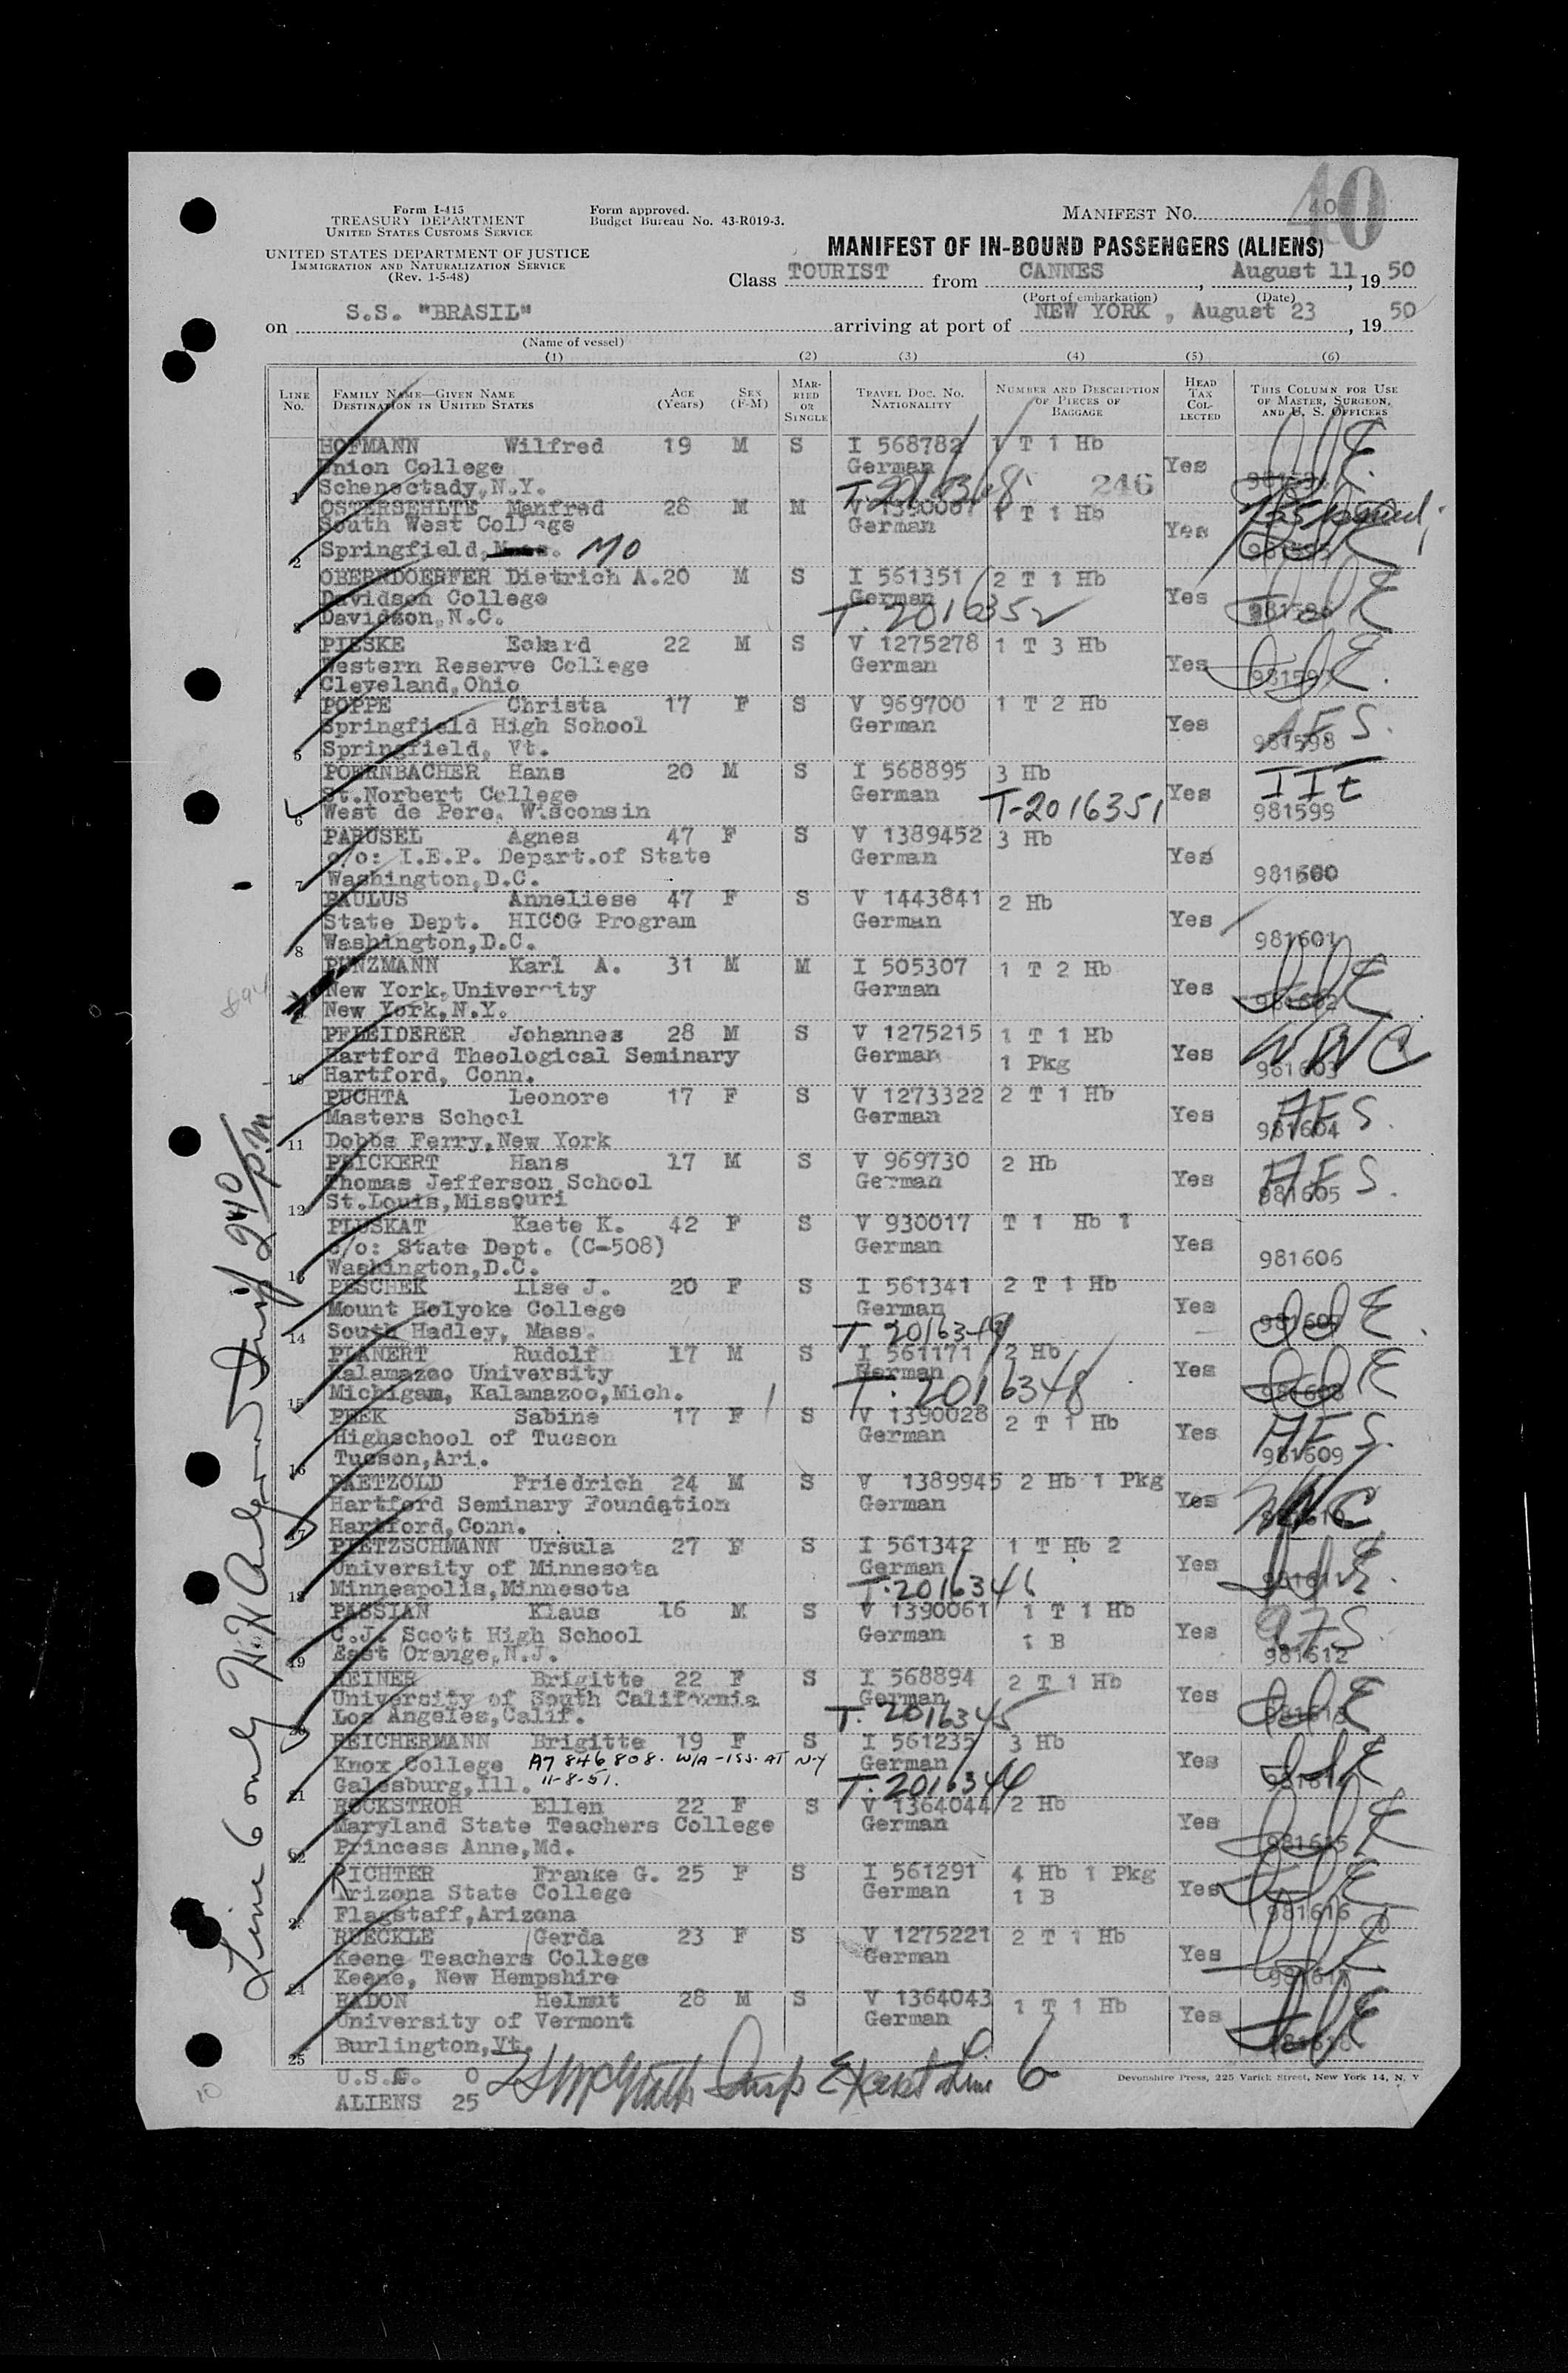 40
Form I-415
TREASURY DEPARTMENT
UNITED STATES CUSTOMS SERVICE
Form approved.
Budget Bureau No. 43-R019-3.
MANIFEST No. 40
UNITED STATES DEPARTMENT OF JUSTICE
IMMIGRATION AND NATURALIZATION SERVICE
(Rev. 1-5-48)
MANIFEST OF IN-BOUND PASSENGERS (ALIENS)
Class TOURIST from CANNES, August 11, 1950
(Port of embarkation) (Date)
on S.S. "BRASIL" arriving at port of NEW YORK, August 23, 1950
(Name of vessel)
(1) (2) (3) (4) (5) (6)
LINE No. FAMILY NAME—GIVEN NAME DESTINATION IN UNITED STATES AGE (Years) SEX (F-M) MARRIED OR SINGLE TRAVEL DOC. No. NATIONALITY NUMBER AND DESCRIPTION OF PIECES OF BAGGAGE HEAD TAX COLLECTED THIS COLUMN FOR USE OF MASTER, SURGEON, AND U. S. OFFICERS
HOFMANN Wilfred 19 M S I 568782 1 T 1 Hb
Union College German Yes
1 Schenectady, N.Y. 246
OSTERSEHLTE Manfred 28 M M 1 T 1 Hb
South West College German Yes
2 Springfield, MO
OBERNDOERFER Dietrich A. 20 M S I 561351 2 T 1 Hb
Davidson College German Yes
3 Davidson, N.C. T. 2016352
PIESKE Eckard 22 M S V 1275278 1 T 3 Hb
Western Reserve College German Yes
4 Cleveland, Ohio
POPPE Christa 17 F S V 969700 1 T 2 Hb
Springfield High School German Yes
5 Springfield, Vt. 981598
POERNBACHER Hans 20 M S I 568895 3 Hb IIE
St. Norbert College German Yes
6 West de Pere, Wisconsin T-2016351 981599
PARUSEL Agnes 47 F S V 1389452 3 Hb
c/o: I.E.P. Depart.of State German Yes
7 Washington, D.C. 981600
PAULUS Anneliese 47 F S V 1443841 2 Hb
State Dept. HICOG Program German Yes
8 Washington, D.C. 981601
PUNZMANN Karl A. 31 M M I 505307 1 T 2 Hb
New York University German Yes
New York, N.Y. 981602
PFLEIDERER Johannes 28 M S V 1275215 1 T 1 Hb
Hartford Theological Seminary German 1 Pkg Yes
10 Hartford, Conn. 981603
PUCHTA Leonore 17 F S V 1273322 2 T 1 Hb
Masters School German Yes AFS.
11 Dobbs Ferry, New York 981604
PEICKERT Hans 17 M S V 969730 2 Hb
Thomas Jefferson School German Yes AFS.
12 St. Louis, Missouri 981605
PLUSKAT Kaete K. 42 F S V 930017 T 1 Hb 1
c/o: State Dept. (C-508) German Yes
13 Washington, D.C. 981606
PESCHEK Ilse J. 20 F S I 561341 2 T 1 Hb
Mount Holyoke College German Yes
14 South Hadley, Mass. T. 2016349
PLANERT Rudolf 17 M S I 561171 2 Hb
Kalamazoo University German Yes
15 Michigan, Kalamazoo, Mich. T. 2016348
PEEK Sabine 17 F S V 1390028 2 T 1 Hb
Highschool of Tucson German Yes AFS.
16 Tucson, Ari. 981609
PAETZOLD Friedrich 24 M S V 1389945 2 Hb 1 Pkg
Hartford Seminary Foundation German Yes
17 Hartford, Conn.
PIETZSCHMANN Ursula 27 F S I 561342 1 T Hb 2
University of Minnesota German Yes
18 Minneapolis, Minnesota T. 2016346
PASSIAN Klaus 16 M S V 1390061 1 T 1 Hb
C.J. Scott High School German 1 B Yes
19 East Orange, N.J. 981612
REINER Brigitte 22 F S I 568894 2 T 1 Hb
University of South California German Yes
20 Los Angeles, Calif. T. 2016345
REICHERMANN Brigitte 19 F S I 561235 3 Hb
Knox College A7 846 808. W/A - ISS. AT N-Y German Yes
21 Galesburg, Ill. 11-8-51. T. 2016344
ROCKSTROH Ellen 22 F S V 1364044 2 Hb
Maryland State Teachers College German Yes
22 Princess Anne, Md. 981615
RICHTER Frauke G. 25 F S I 561291 4 Hb 1 Pkg
Arizona State College German 1 B Yes
Flagstaff, Arizona 981616
RUECKLE Gerda 23 F S V 1275221 2 T 1 Hb
Keene Teachers College German Yes
24 Keene, New Hempshire
RADON Helmut 28 M S V 1364043 1 T 1 Hb
University of Vermont German Yes
25 Burlington, Vt.
U.S.C. 0
ALIENS 25 Insp Except Line 6
Devonshire Press, 225 Varick Street, New York 14, N. Y
Line 6 only 240 pm